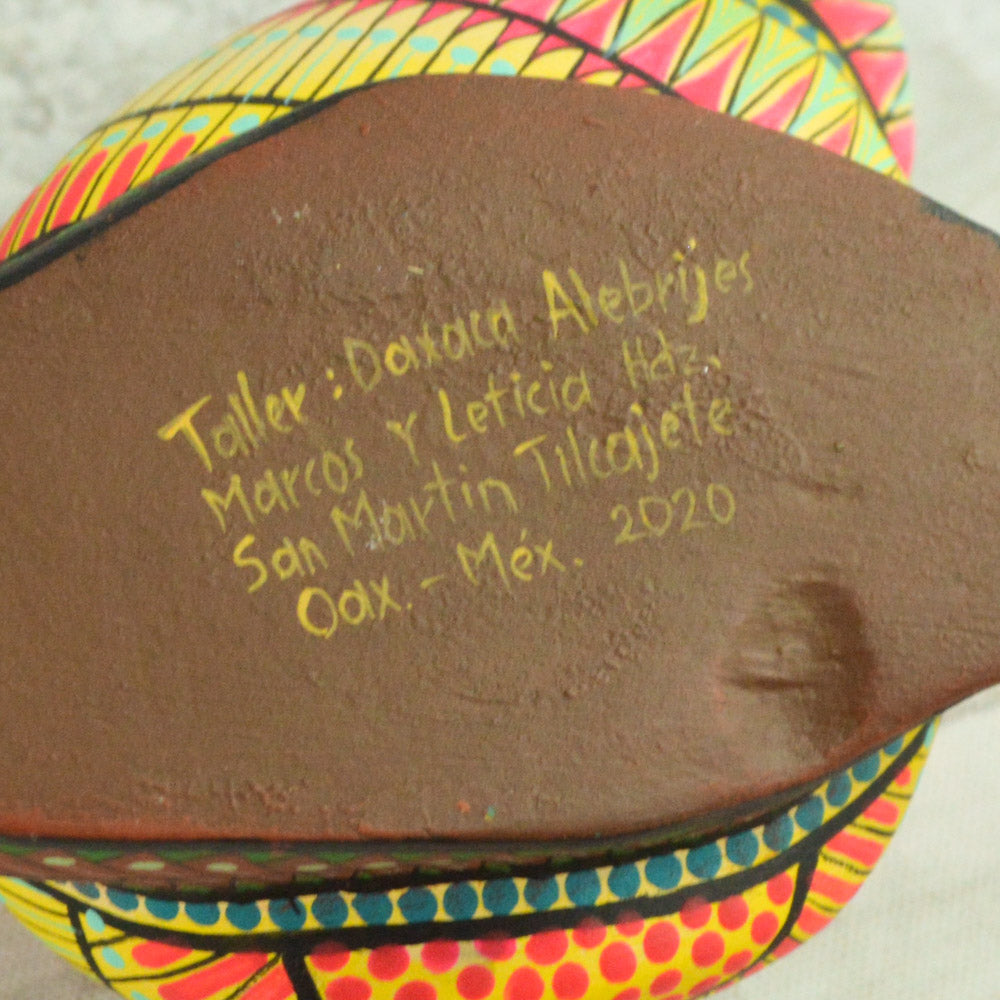 Taller: Oaxaca Alebrijes
Marcos Y Leticia Hdz.
San Martin Tilcajete
Oax. - Méx. 2020